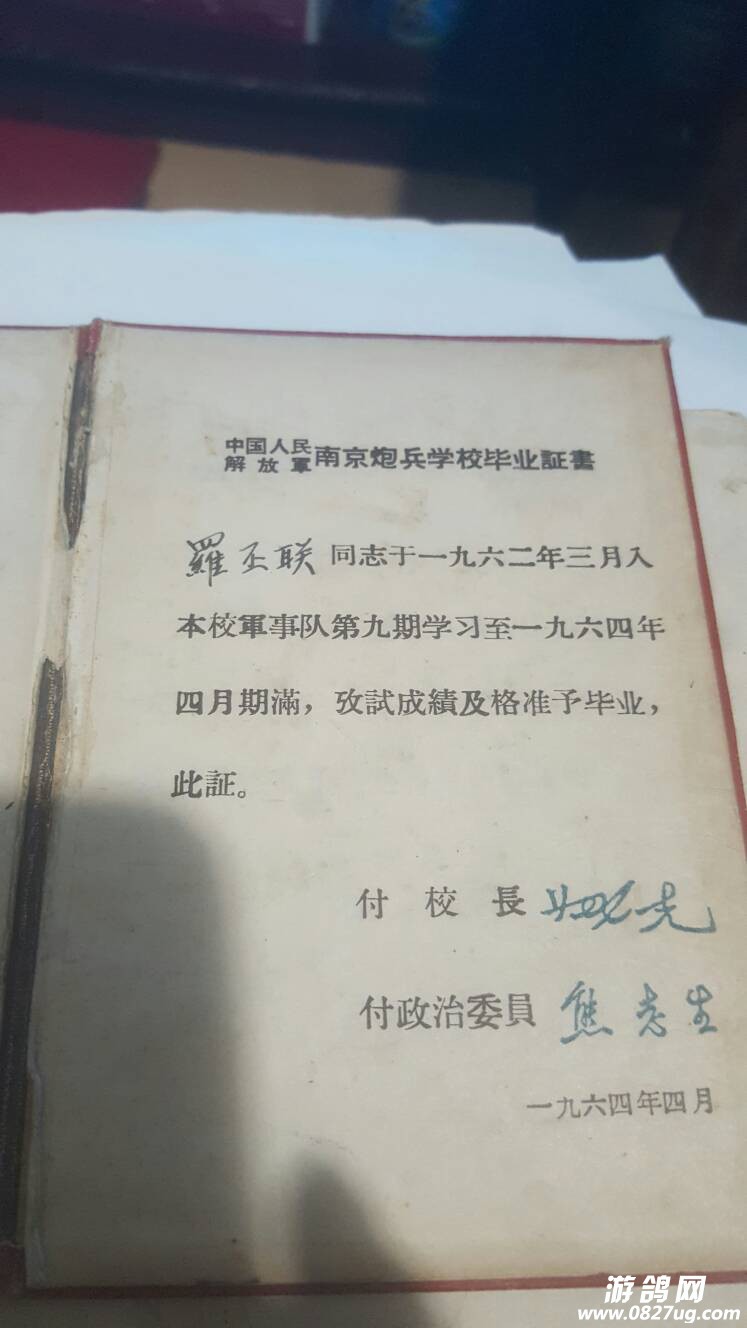 中国人民
解放軍南京炮兵学校毕业証書
羅丕联同志于一九六二年三月入
本校軍事队第九期学习至一九六四年
四月期滿，攷試成績及格准予毕业，
此証。
付校長
付政治委員 焦志生
一九六四年四月
游鸽网
www.0827ug.com